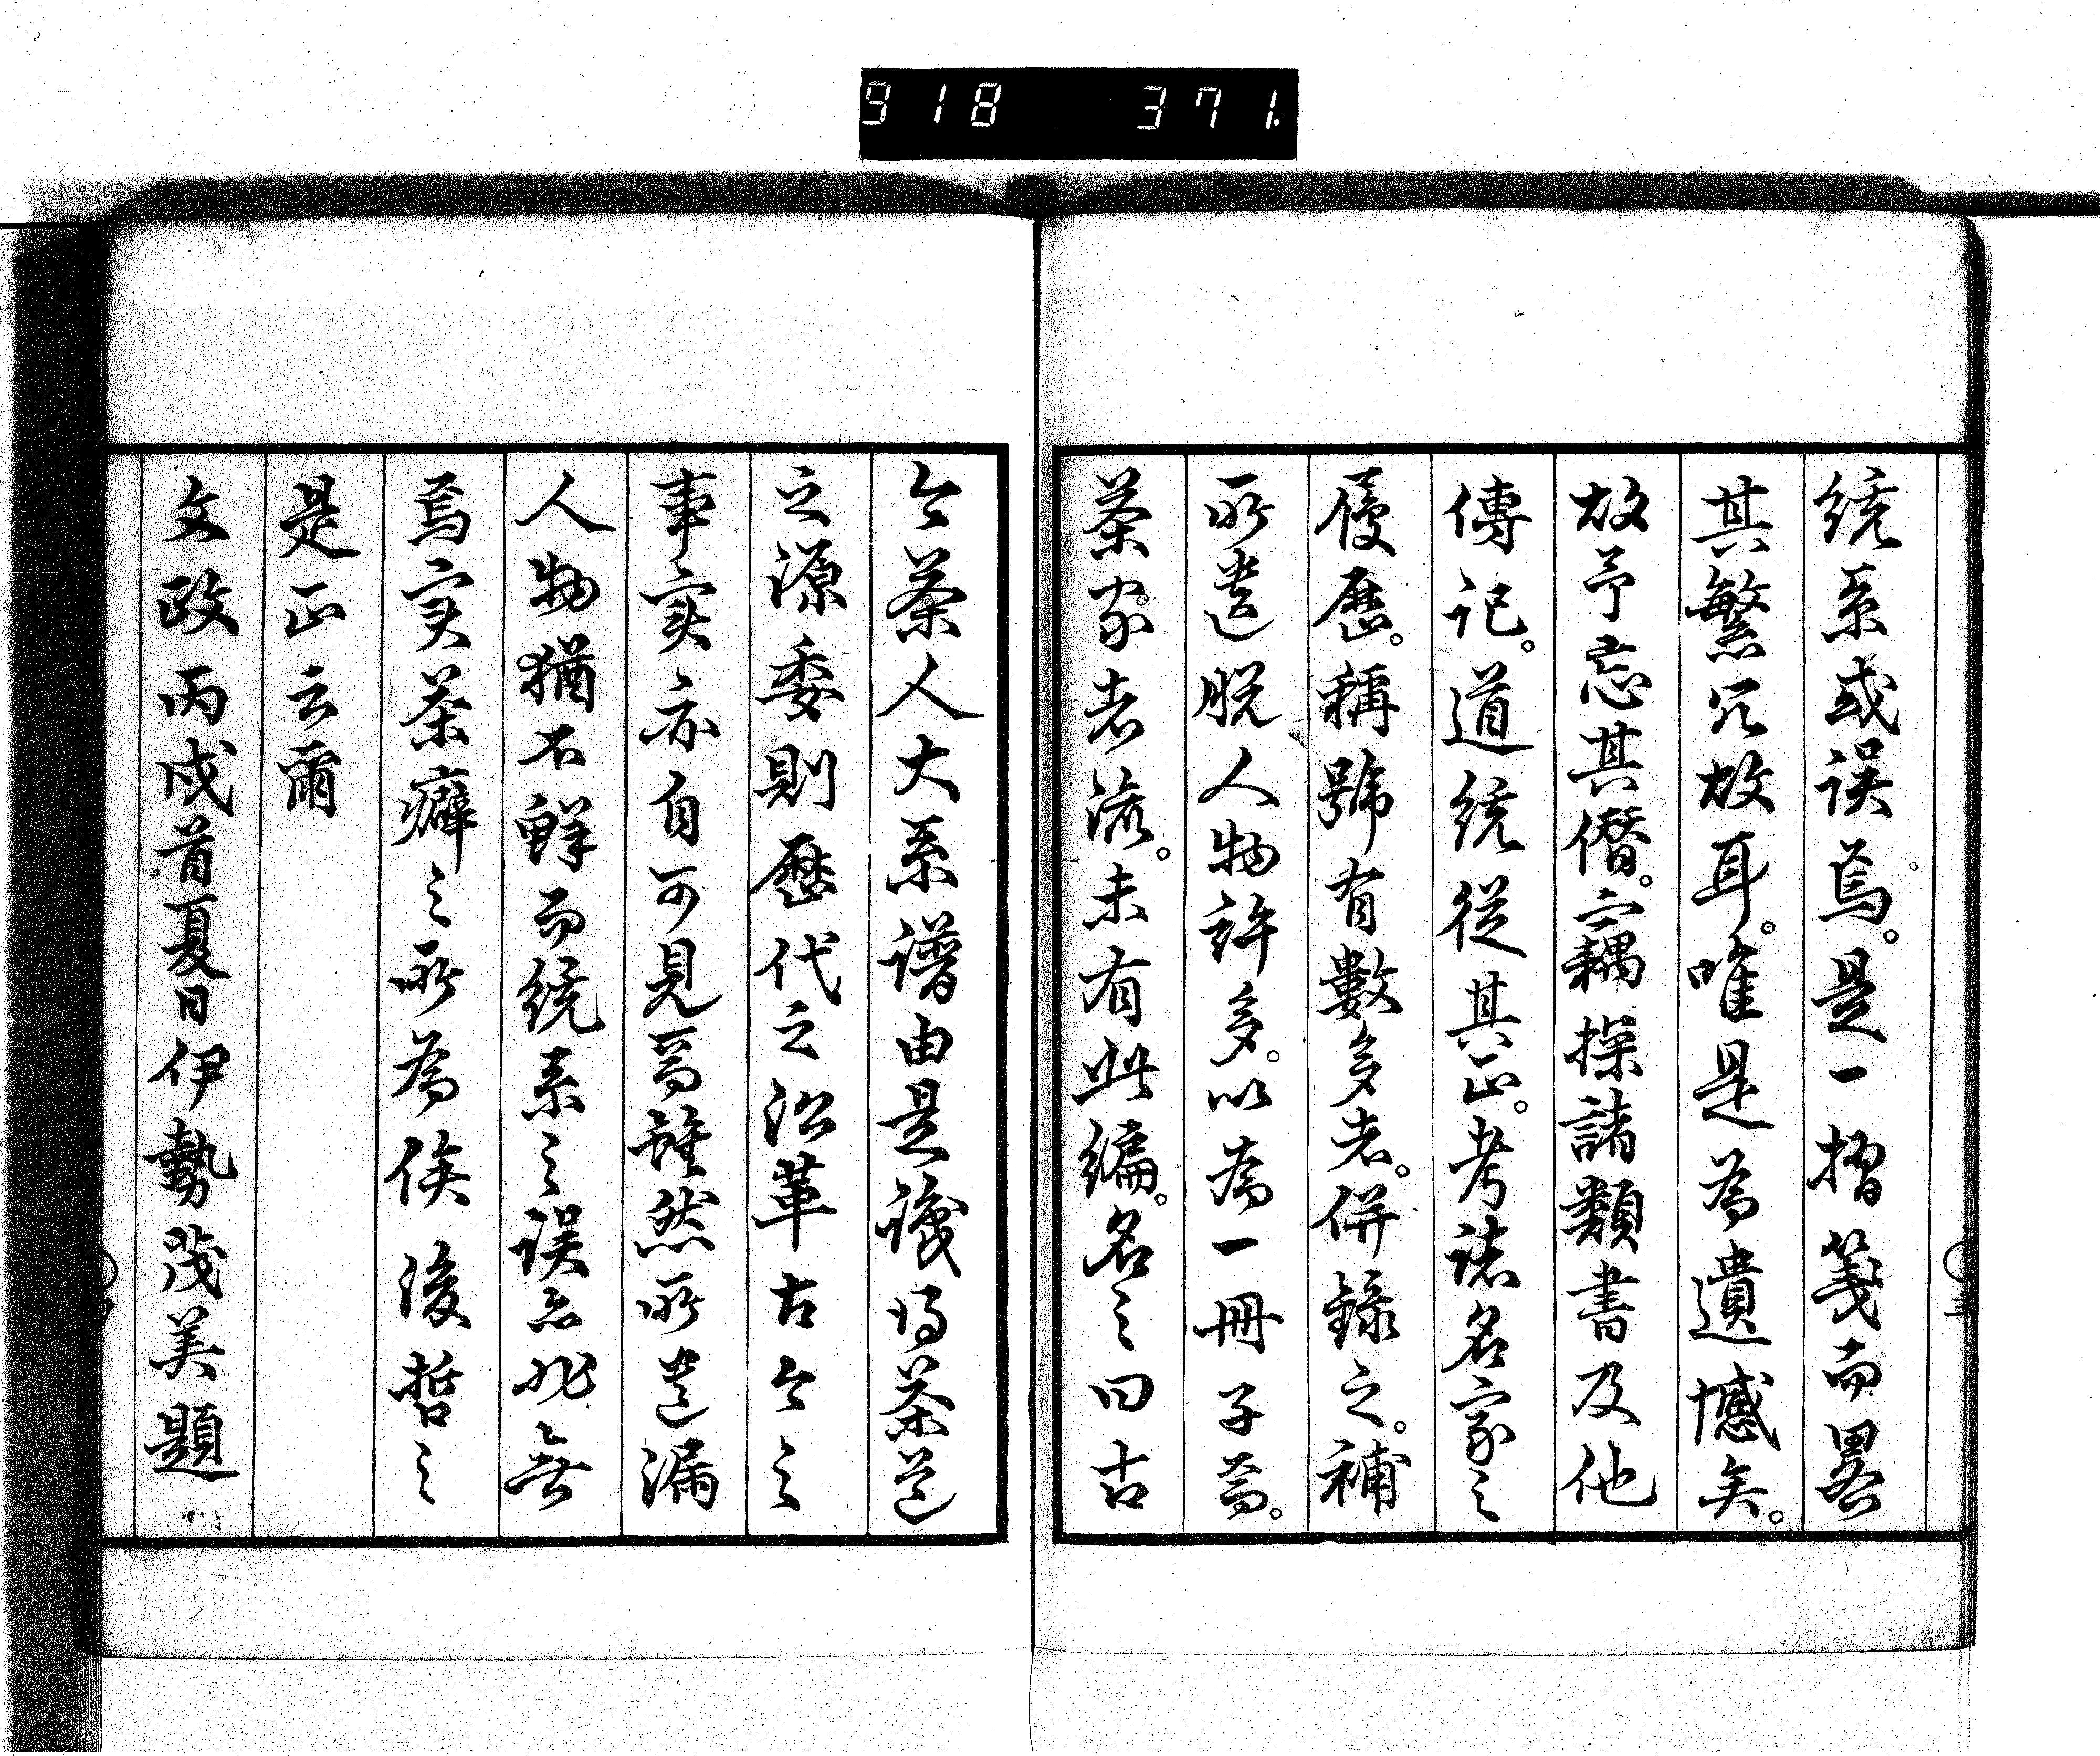 918 371.
統系或誤焉。是一摺箋而畧
其繁冗故耳。唯是為遺憾矣。
故予忘其僭。竊操諸類書及他
傳記。道統從其正。考諸名家之
履歷。稱號有數多者。併錄之。補
所遺脱人物許多。以為一冊子焉。
茶家者流。未有此編。名之曰古
今茶人大系譜由是識得茶道
之源委則歷代之沿革古今之
事実亦自可見焉雖然所遺漏
人物猶不鮮而統系之誤亦非無
焉実茶癖之所為俟後哲之
是正云爾
文政丙戌首夏日伊勢茂美題